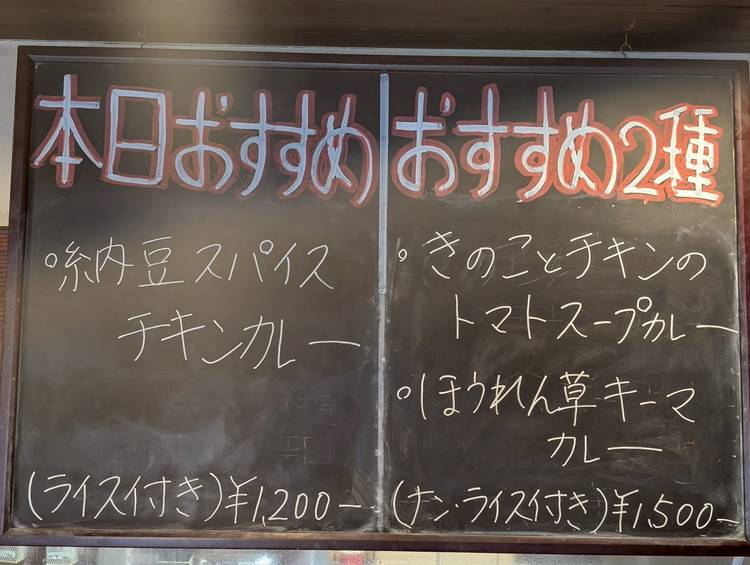 本日おすすめ
○納豆スパイス
チキンカレー
(ライス付き)¥1,200-
おすすめ2種
○きのことチキンの
トマトスープカレー
○ほうれん草キーマ
カレー
(ナン・ライス付き)¥1,500-